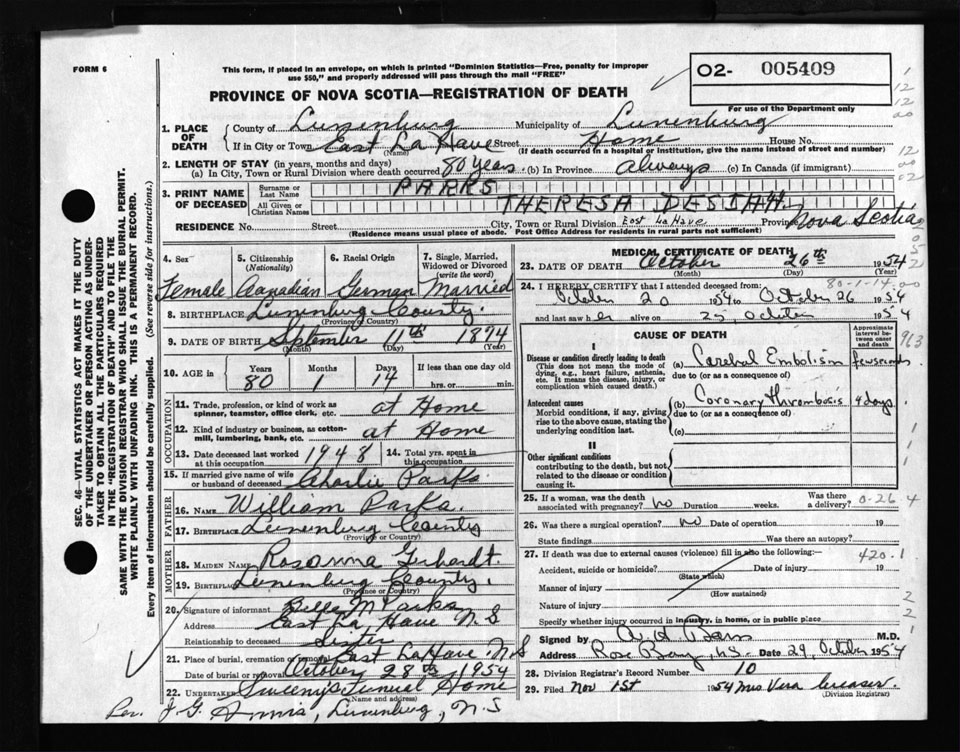 FORM 6
This form, if placed in an envelope, on which is printed "Dominion Statistics—Free, penalty for improper
use $50," and properly addressed will pass through the mail "FREE"
02- 005409
For use of the Department only
PROVINCE OF NOVA SCOTIA—REGISTRATION OF DEATH
1. PLACE OF DEATH County of Lunenburg Municipality of Lunenburg
If in City or Town East La Have Street Home House No.
(Name) (If death occurred in a hospital or institution, give the name instead of street and number)
2. LENGTH OF STAY (in years, months and days)
(a) In City, Town or Rural Division where death occurred 80 years (b) In Province Always (c) In Canada (if immigrant)
3. PRINT NAME OF DECEASED Surname or Last Name PARKS
All Given or Christian Names THERESA DESIAH
RESIDENCE No. Street City, Town or Rural Division East La Have Province Nova Scotia
(Residence means usual place of abode. Post Office Address for residents in rural parts not sufficient)
SEC. 46—VITAL STATISTICS ACT MAKES IT THE DUTY
OF THE UNDERTAKER OR PERSON ACTING AS UNDER-
TAKER TO OBTAIN ALL THE PARTICULARS REQUIRED
IN THE "REGISTRATION OF DEATH" AND TO FILE THE
SAME WITH THE DIVISION REGISTRAR WHO SHALL ISSUE THE BURIAL PERMIT.
WRITE PLAINLY WITH UNFADING INK. THIS IS A PERMANENT RECORD.
Every item of information should be carefully supplied. (See reverse side for instructions.)
4. Sex 5. Citizenship (Nationality) 6. Racial Origin 7. Single, Married, Widowed or Divorced (write the word)
Female Canadian German Married
8. BIRTHPLACE Lunenburg County.
(Province or Country)
9. DATE OF BIRTH September 11th 1874
(Month) (Day) (Year)
10. AGE Years Months Days If less than one day old
80 1 14 hrs. or min.
OCCUPATION
11. Trade, profession, or kind of work as spinner, teamster, office clerk, etc. at Home
12. Kind of industry or business, as cotton-mill, lumbering, bank, etc. at Home
13. Date deceased last worked at this occupation 1948 14. Total yrs. spent in this occupation
15. If married give name of wife or husband of deceased Charlie Parks
FATHER
16. NAME William Parks.
17. BIRTHPLACE Lunenburg County
(Province or Country)
MOTHER
18. MAIDEN NAME Rosanna Gerhardt.
19. BIRTHPLACE Lunenburg County.
(Province or Country)
20. Signature of informant Bella M Parks
Address East La Have N.S
Relationship to deceased Sister
21. Place of burial, cremation or removal East La Have N S
Date of burial or removal October 28th 1954
22. UNDERTAKER Sweeny's Funeral Home
(Name and address)
Rev. J. G. Lunenburg, N.S
MEDICAL CERTIFICATE OF DEATH
23. DATE OF DEATH October 26th 1954
(Month) (Day) (Year)
80-1-14
24. I HEREBY CERTIFY that I attended deceased from
October 20 1954 to October 26 1954
and last saw her alive on 25 October 1954
CAUSE OF DEATH
Approximate interval between onset and death
I
Disease or condition directly leading to death
(This does not mean the mode of dying, e.g., heart failure, asthenia, etc. It means the disease, injury, or complication which caused death.)
(a) Cerebal Embolism few seconds
due to (or as a consequence of)
Antecedent causes
Morbid conditions, if any, giving rise to the above cause, stating the underlying condition last.
(b) Coronary thrombosis 4 days.
due to (or as a consequence of)
(c)
II
Other significant conditions
contributing to the death, but not related to the disease or condition causing it.
25. If a woman, was the death associated with pregnancy? No Duration weeks. Was there a delivery?
0-26
26. Was there a surgical operation? No Date of operation 19
State findings Was there an autopsy?
27. If death was due to external causes (violence) fill in also the following:—
420.1
Accident, suicide or homicide? Date of injury 19
(State which)
Manner of injury
(How sustained)
Nature of injury
Specify whether injury occurred in industry, in home, or in public place
Signed by M.D.
Address Rose Bay, N.S. Date 29 October 1954
28. Division Registrar's Record Number 10
29. Filed Nov 1st 1954 Mrs Vera Creaser.
(Division Registrar)